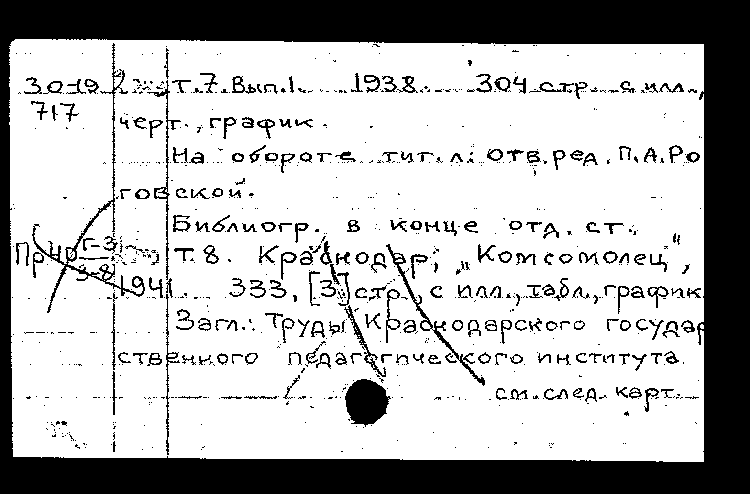 30-19 Т.7. Вып.1. 1938. 304 стр. с илл.,
717
черт., график.
На обороте тит. л: Отв. ред. П.А.Ро
говской.
Библиогр. в конце отд. ст.
ПрНО Г-3 Т.8. Краснодар, „Комсомолец",
3-8 1941. 333, [3] стр., с илл., табл., график
Загл.: Труды Краснодарского государ
ственного педагогического института
см. след. карт.